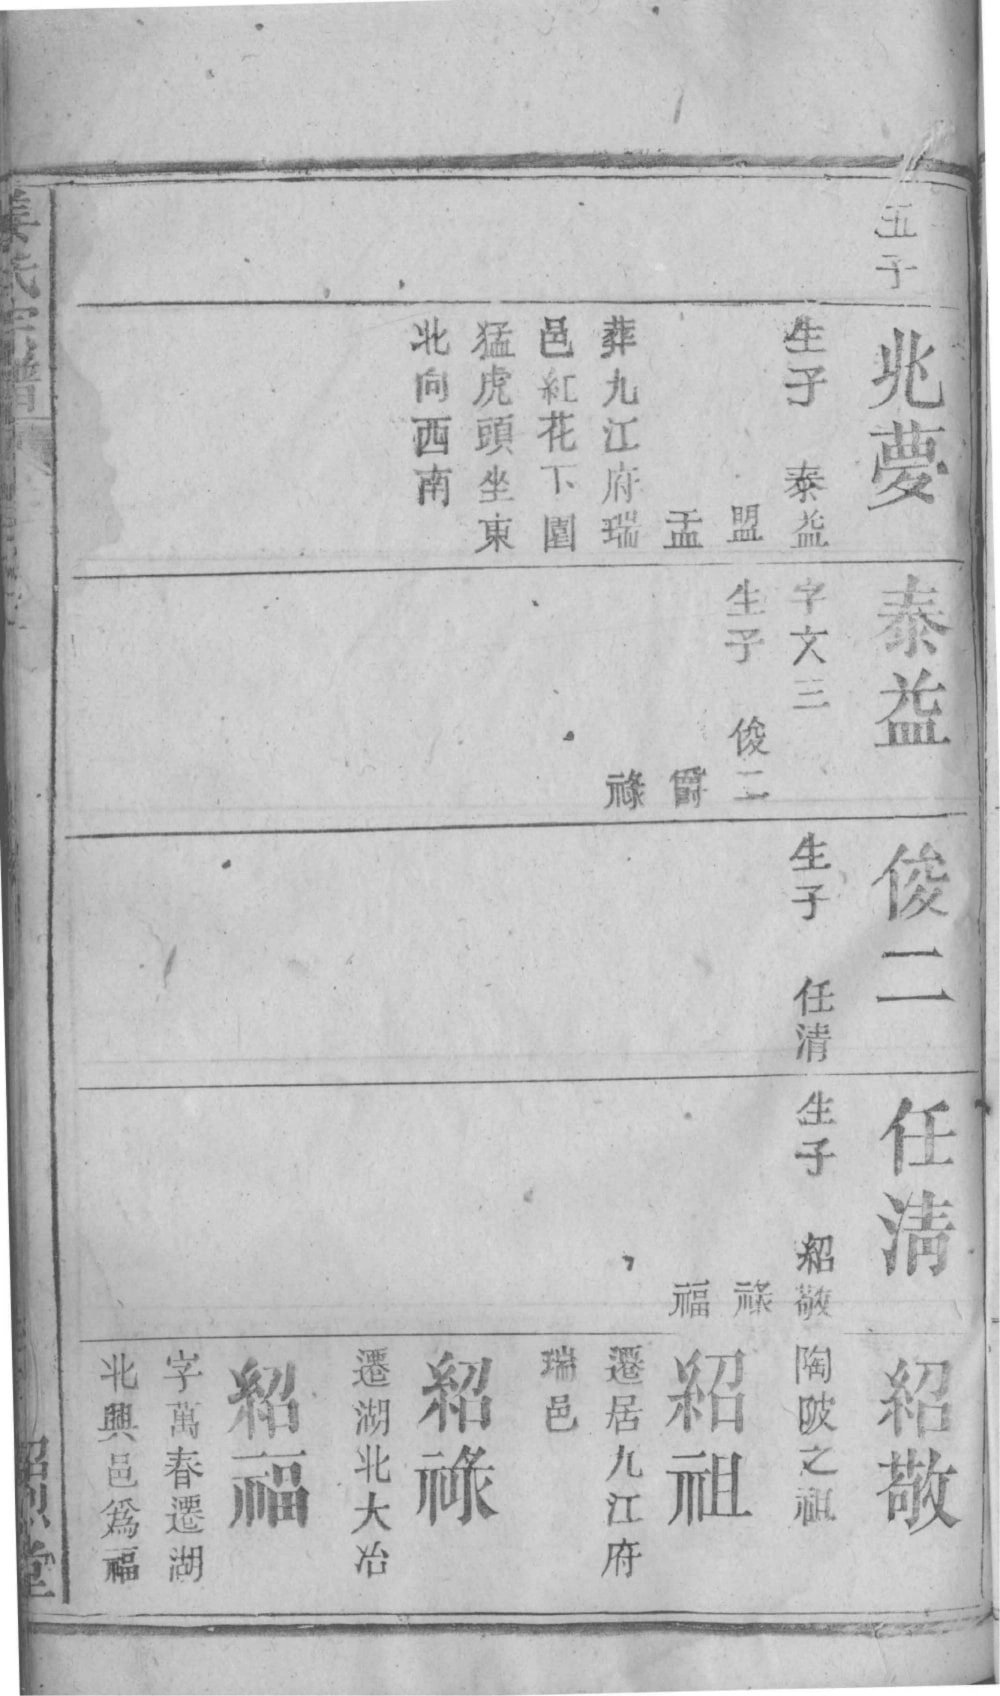 五子
兆夢
生子 泰益
盟
盂
葬九江府瑞
邑紅花下圍
猛虎頭坐東
北向西南
泰益
字文三
生子 俊二
爵
祿
俊二
生子 任清
任清
生子 紹敬
祿
福
紹敬
陶陂之祖
紹祖
遷居九江府
瑞邑
紹祿
遷湖北大冶
紹福
字萬春遷湖
北興邑爲福
氏宗譜
堂